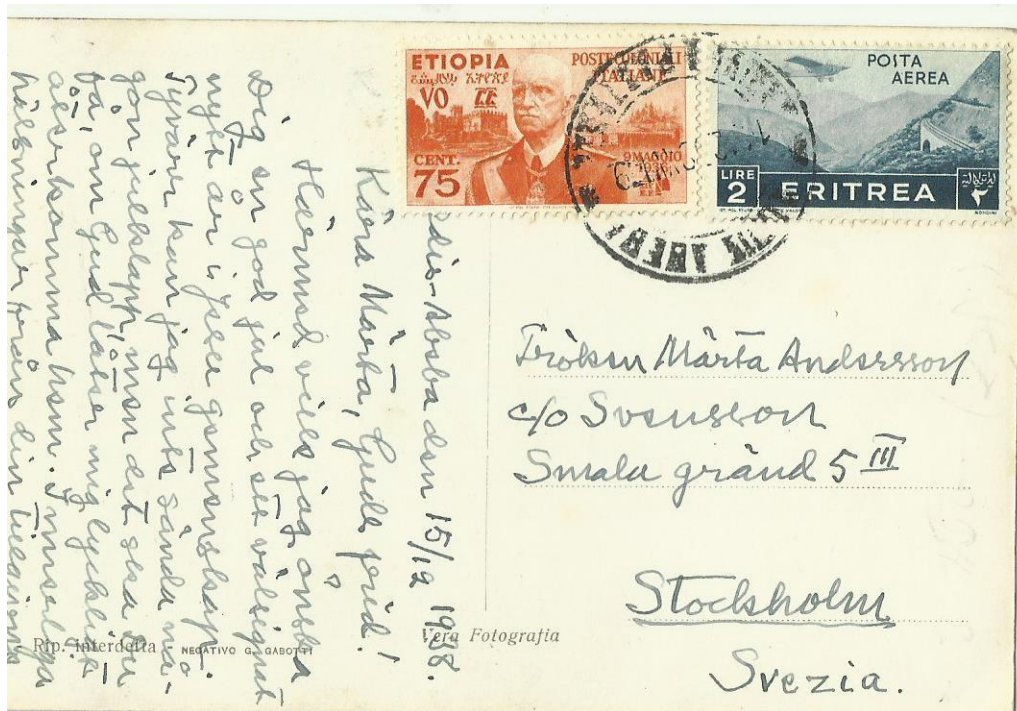 ETIOPIA
POSTE COLONIALI
ITALIANE
CENT.
75
9 MAGGIO
POSTA
AEREA
LIRE
2
ERITREA
dis-Abeba den 15/12 1938.
Kära Märta, Guds frid!
Härmed ville jag önska
Dig en god jul och ett välsignat
nytt år i Jesu gemenskap.
Tyvärr kan jag inte sända nå-
gon julklapp, men det ska du
få, om Gud låter mig lyckligt
återkomma hem. Innerliga
hälsningar från din tillgivna
Fröken Märta Andersson
c/o Svensson
Smala gränd 5 III
Stockholm
Svezia.
Rip. interdetta - NEGATIVO G. GABOTTI
Vera Fotografia